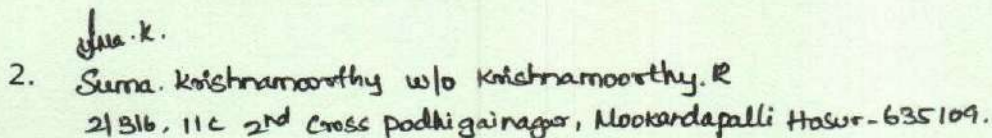 Suma.K.
2. Suma. Krishnamoorthy w/o Krishnamoorthy.R
2/316, 11c 2nd Cross Podhigainagar, Mookandapalli Hosur-635109.